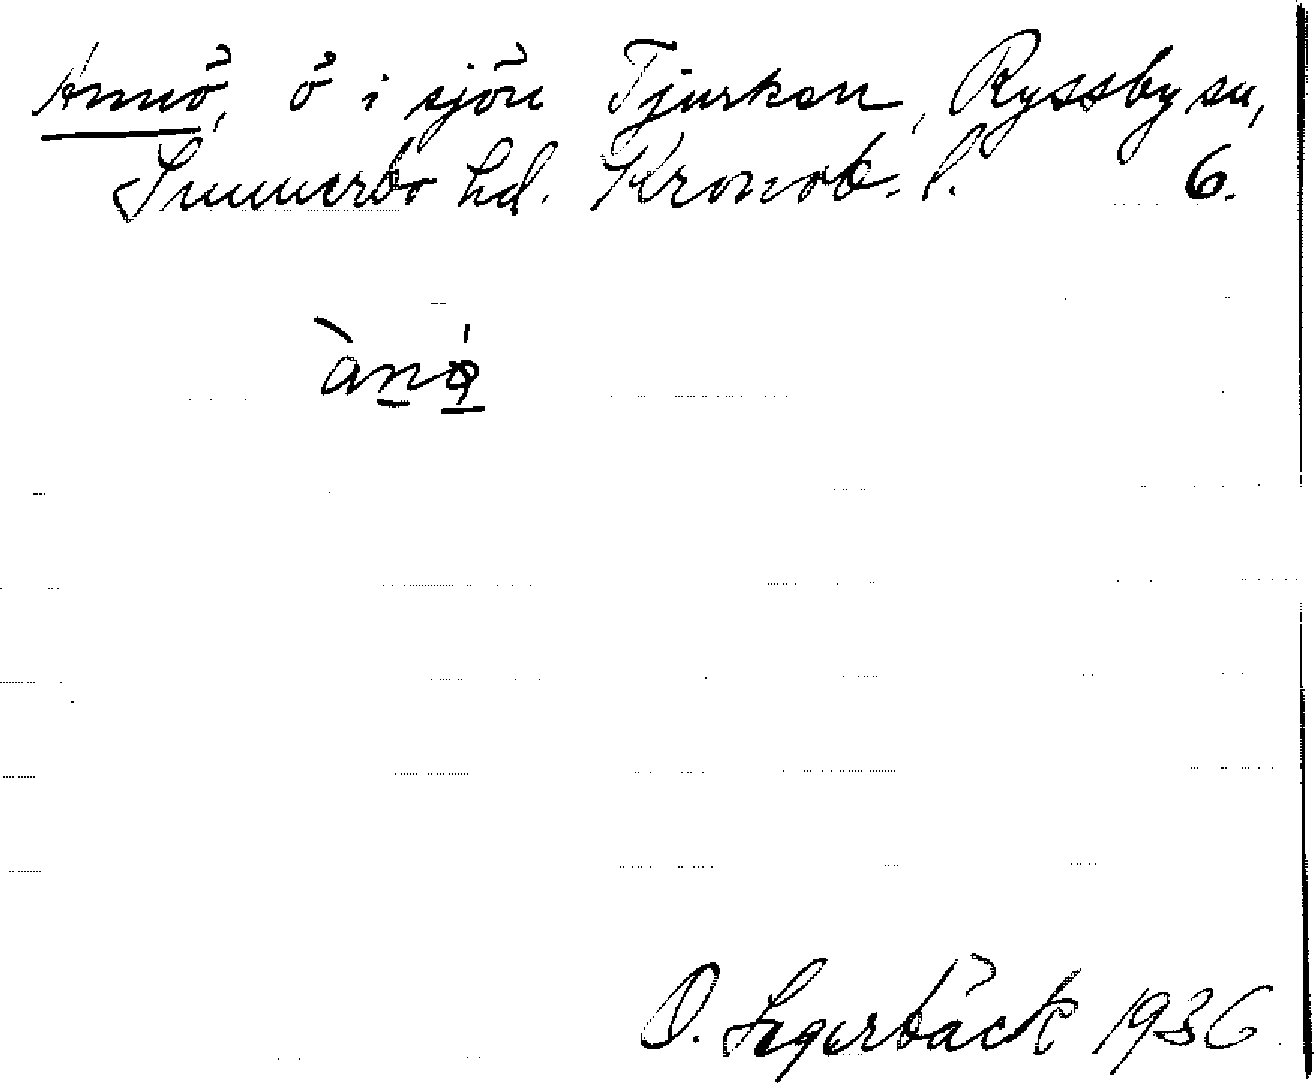 Annö, ö i sjön Tjurken, Ryssby sn,
Sunnerbo hd. Kronob. l. 6.
ànö
O. Segerbäck 1936